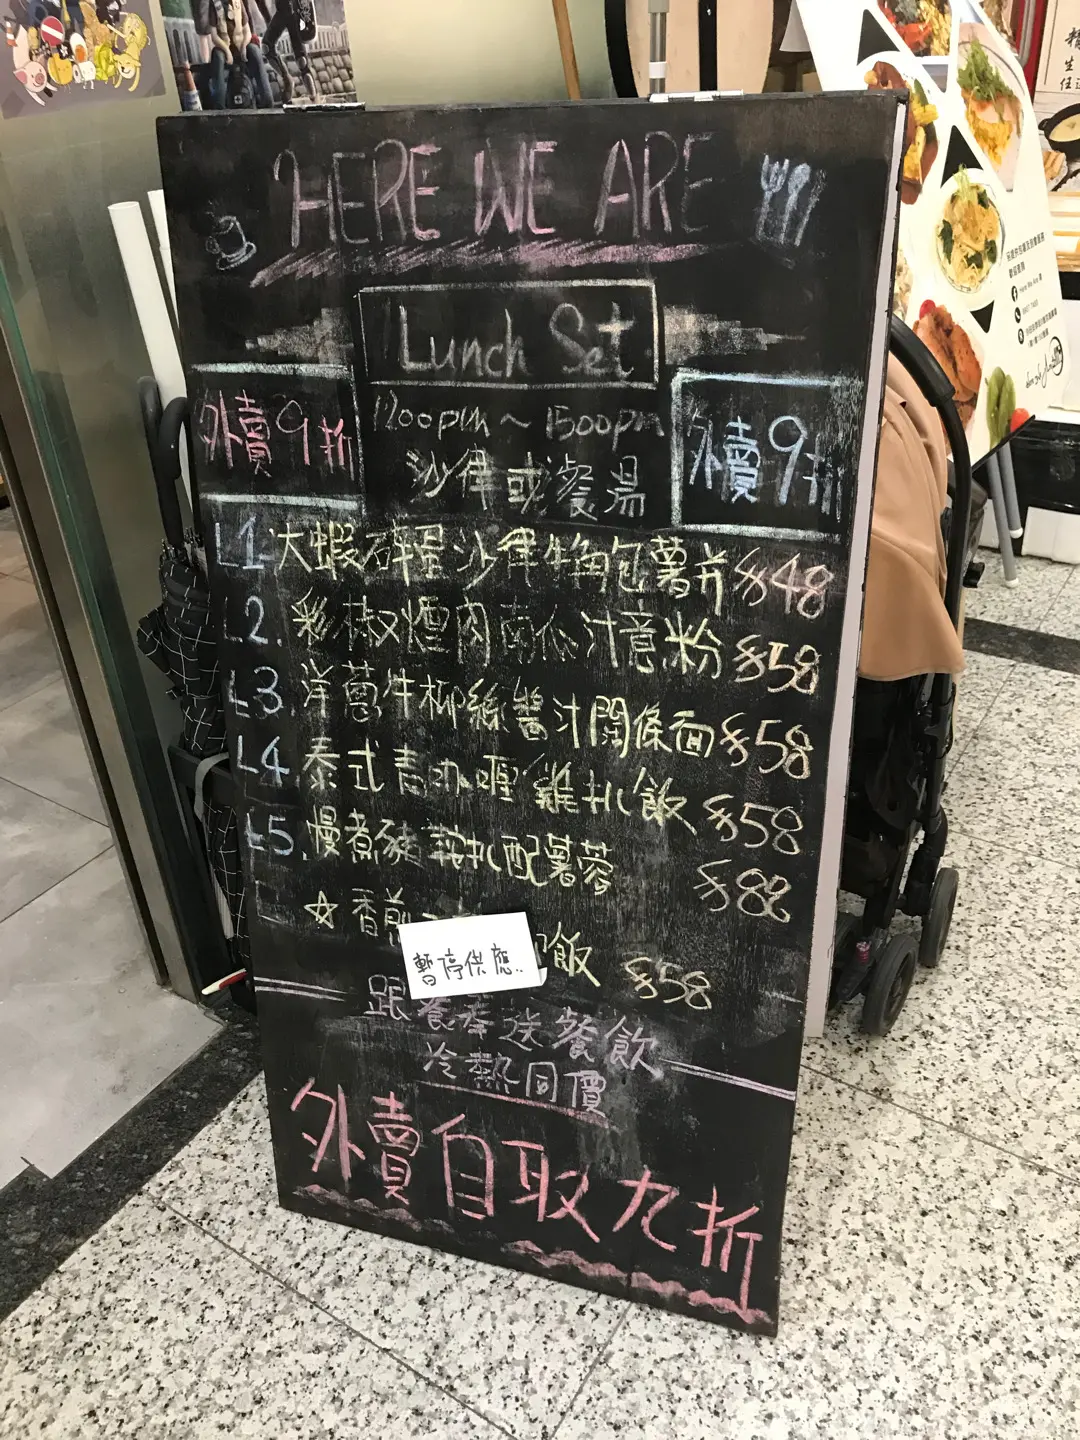 HERE WE ARE
Lunch Set
外賣9折
1200pm ~ 1500pm
外賣9折
沙律或餐湯
L1 大蝦碎蛋沙律牛角包薯片 $48
L2. 彩椒煙肉南瓜汁意粉 $58
L3. 洋蔥牛柳絲醬汁闊條面 $58
L4 泰式青咖喱雞扒飯 $58
L5. 慢煮豬鞍扒配薯蓉 $88
☆ 香煎 飯 $58
暫停供應..
跟餐奉送餐飲
冷熱同價
外賣自取九折